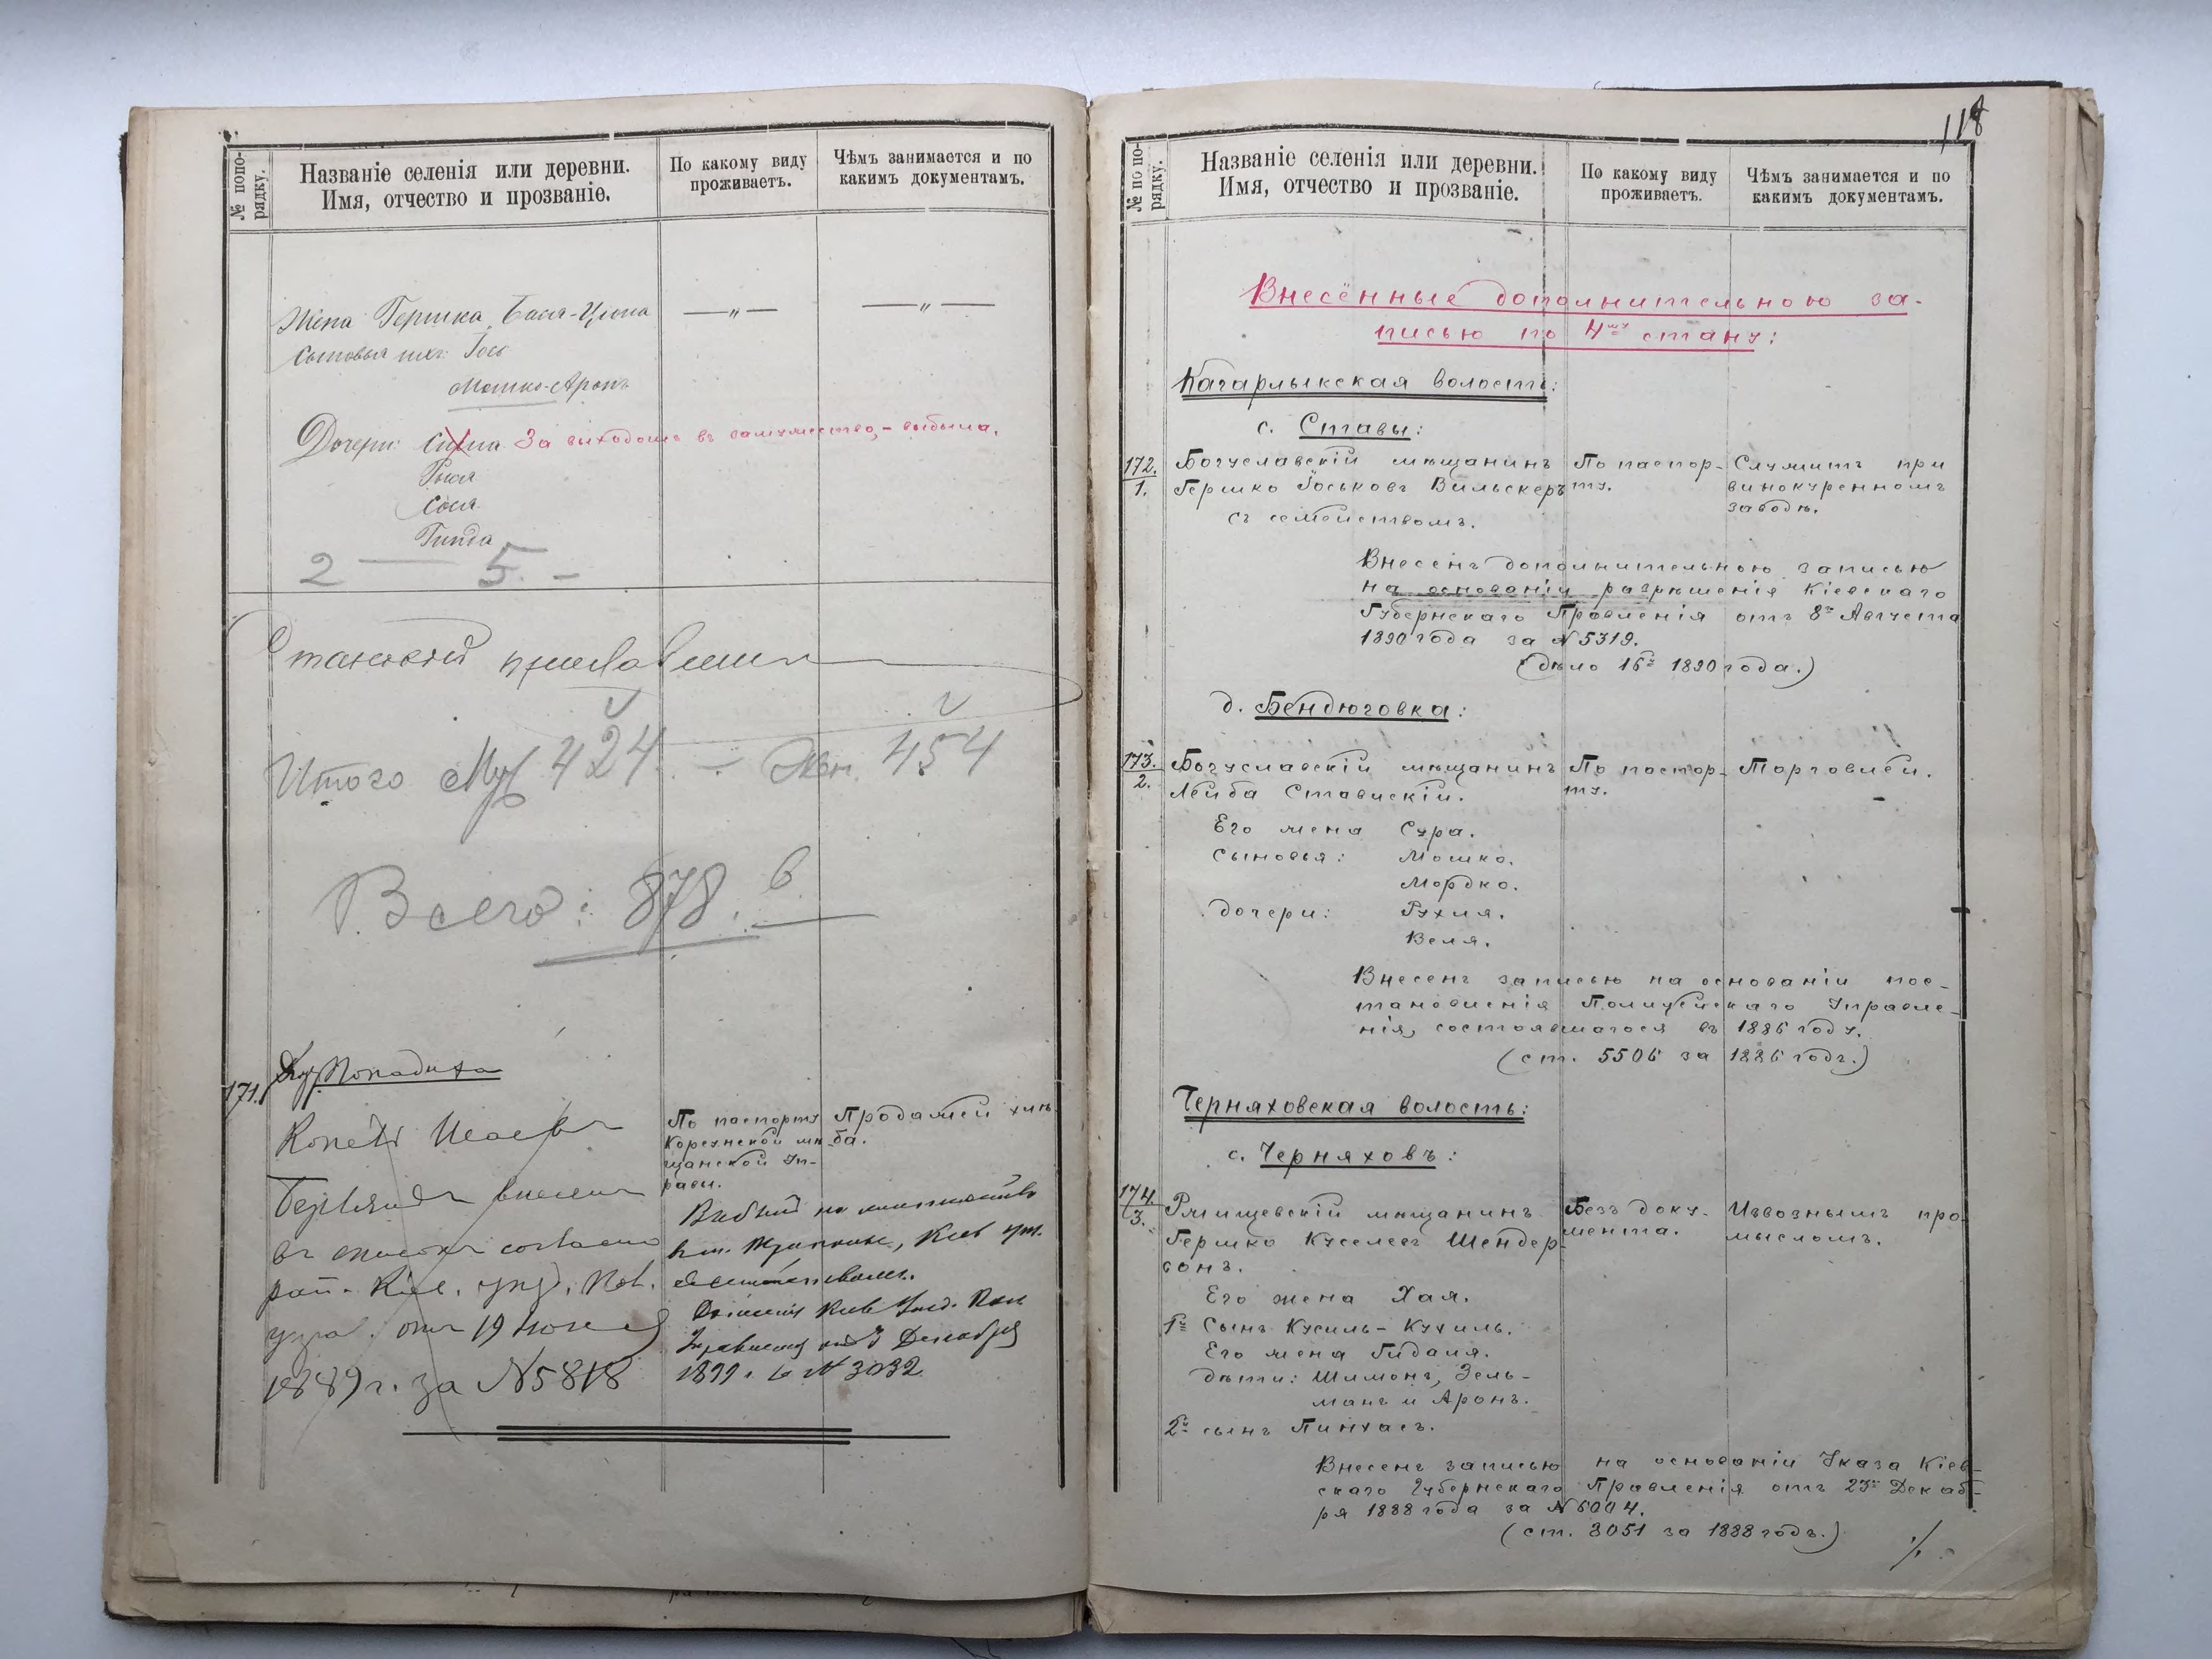 № попо-
рядку.
Названіе селенія или деревни.
Имя, отчество и прозваніе.
По какому виду
проживаетъ.
Чѣмъ занимается и по
какимъ документамъ.
Жена Гершка, Бася-Ципа
—„—
—„—
Сыновья ихъ: Іось
Мошко-Аронъ
Дочери: Сима За выходомъ въ замужество, - выбыла.
Рыся
Сося
Гинда
2 — 5. –
Становой приставъ
Итого Муж 424. – Жен. 454
Всего: 878.
дер. Попадиха
171.
По паспорту
Корсунской мѣ-
щанской Уп-
равы.
Продажей хлѣ-
ба.
внесенъ
въ списокъ согласно
рап. Кіев. уѣзд. Пол.
управ. отъ 19
1889 г. за №5818
Выбылъ на жительство
Кіев.
Кіев Уѣзд. Пол
Управленія Декабря
№ 3032
118
№ по по-
рядку.
Названіе селенія или деревни.
Имя, отчество и прозваніе.
По какому виду
проживаетъ.
Чѣмъ занимается и по
какимъ документамъ.
Внесённые дополнительною за-
писью по 4му стану:
Кагарлыкская волость:
с. Ставы:
172.
1.
Богуславскій мѣщанинъ
Гершко Іоськовъ Вильскеръ
съ семействомъ.
По паспор-
ту.
Служитъ при
винокуренномъ
заводѣ.
Внесенъ дополнительною записью
на основаніи разрѣшенія Кіевскаго
Губернскаго Правленія отъ 8го Августа
1890 года за №5319.
(дѣло 16е 1890 года.)
д. Бендюговка:
173.
2.
Богуславскій мѣщанинъ
Лейба Ставискій.
По паспор-
ту.
Торговлей.
Его жена Сура.
Сыновья: Мошко.
Мордко.
Дочери: Рухля.
Веля.
Внесенъ записью на основаніи пос-
тановленія Полицейскаго Управле-
нія, состоявшагося въ 1886 году.
(ст. 5506 за 1886 годъ.)
Черняховская волость:
с. Черняховъ:
174.
3.
Ржищевскій мѣщанинъ
Гершко Куселевъ Шендер-
сонъ.
Безъ доку-
мента.
Извознымъ про-
мысломъ.
Его жена Хая.
1й Сынъ Кусиль-Кухиль.
Его жена Гидаля.
Дѣти: Шимонъ, Зель-
манъ и Аронъ.
2й сынъ Пинхасъ.
Внесенъ записью на основаніи Указа Кіев-
скаго Губернскаго Правленія отъ 23го Декаб-
ря 1888 года за №6004.
(ст. 3051 за 1888 годъ.)